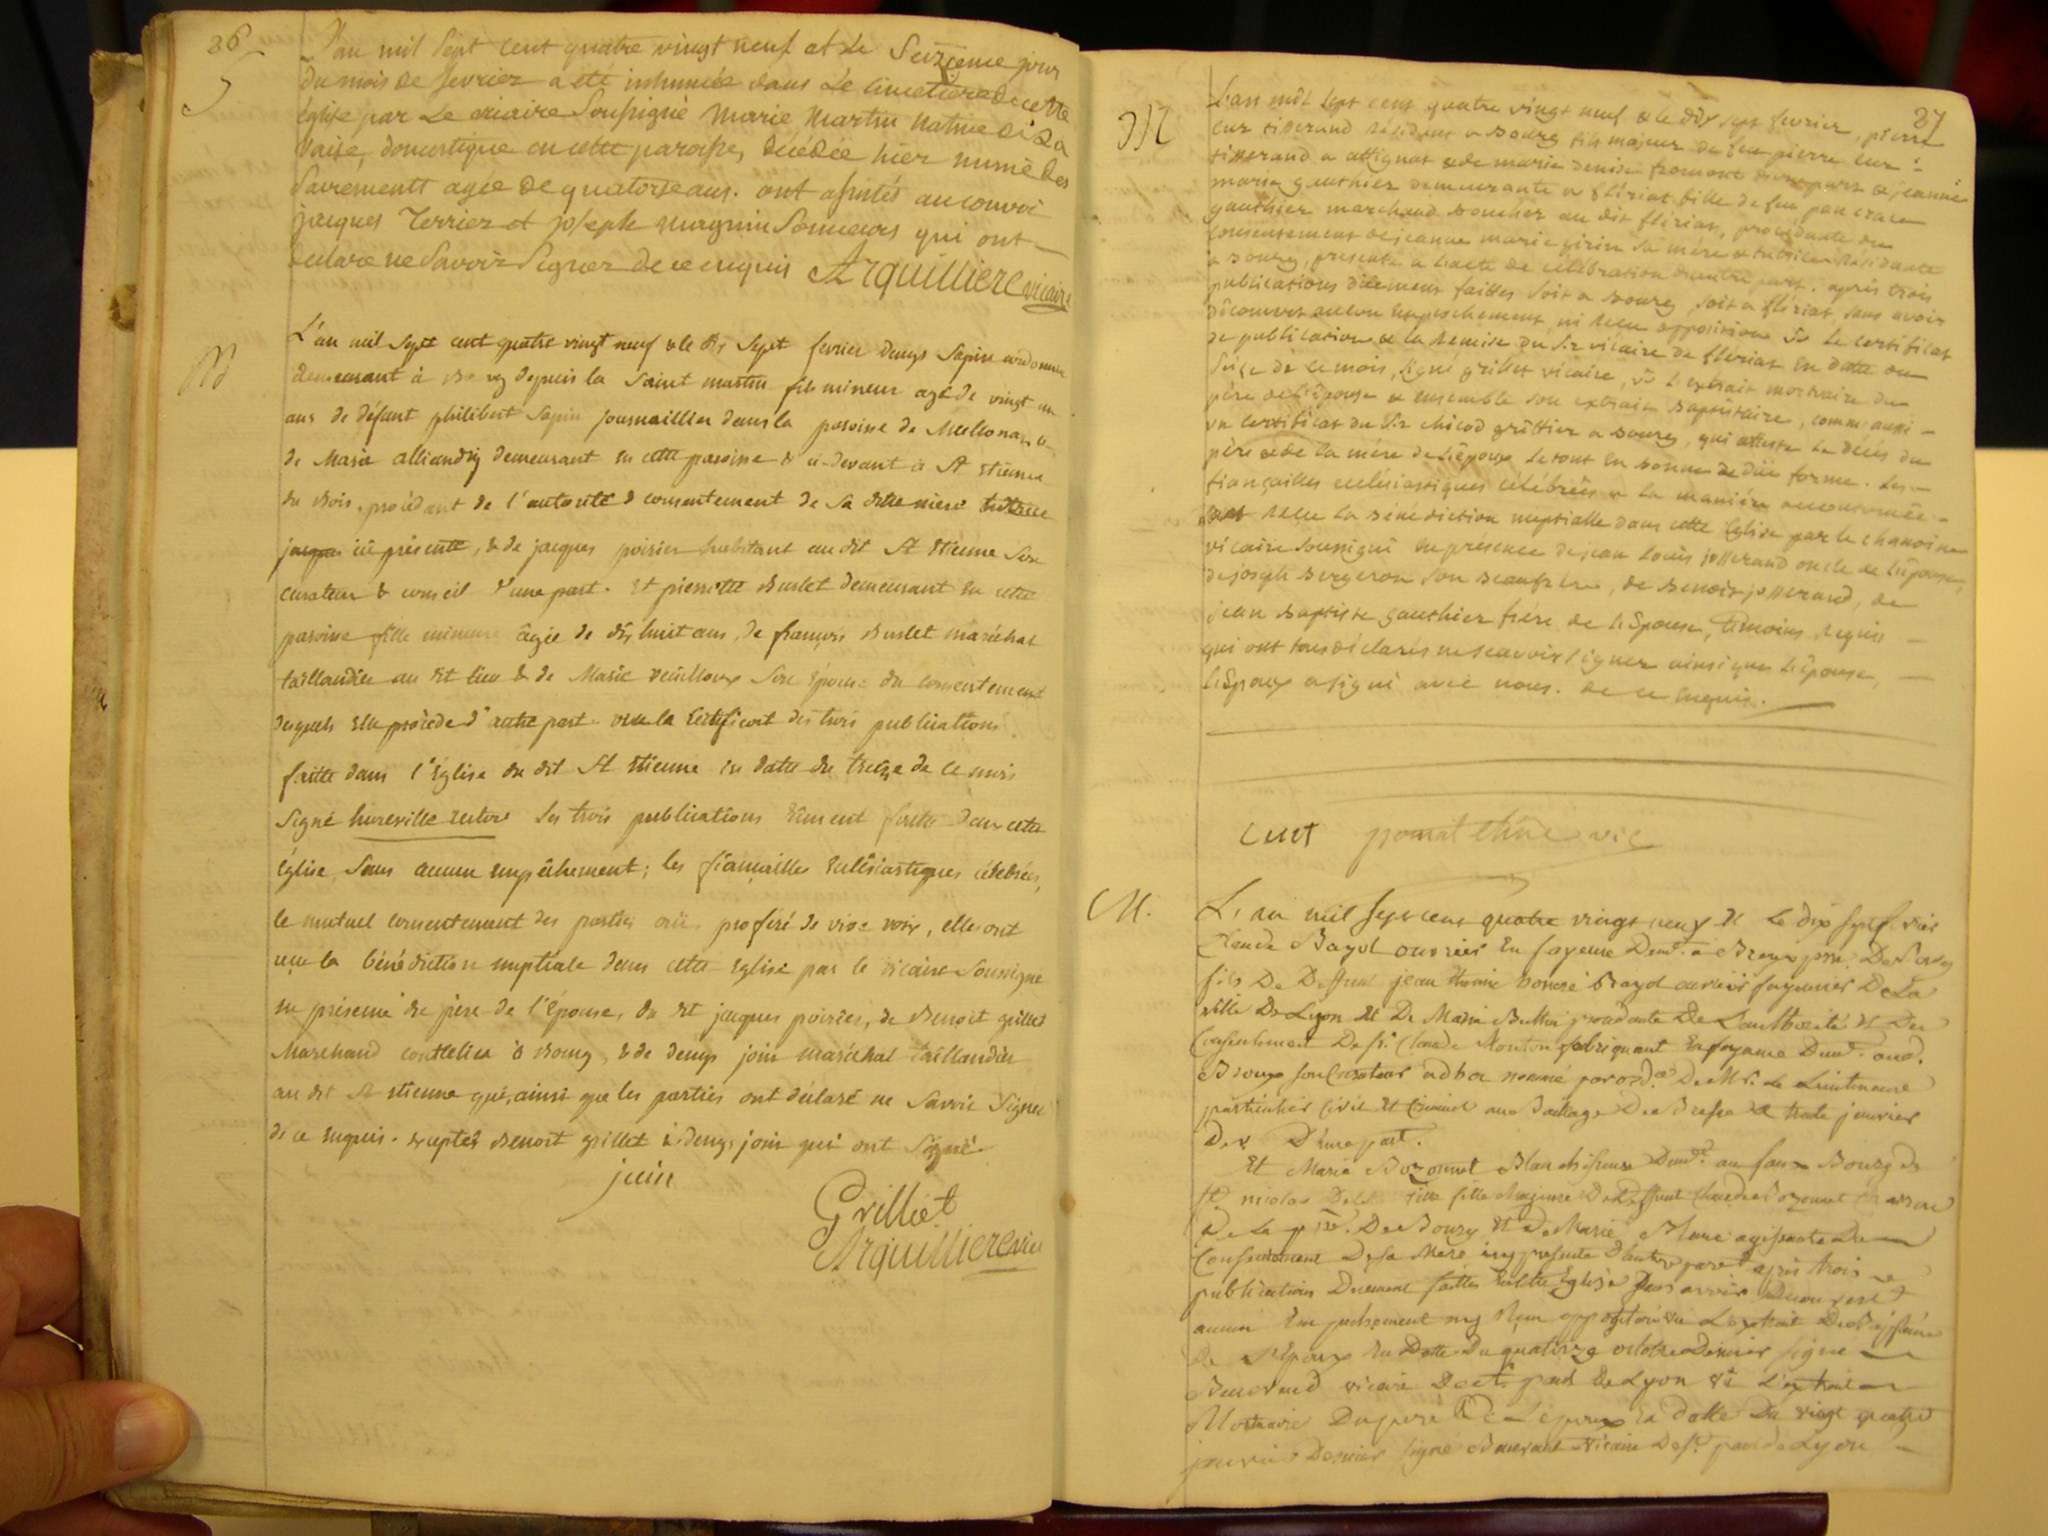 36
S
L'an mil Sept cent quatre vingt neuf et Le Seizieme jour
du mois de fevrier a été inhumée dans Le Cimetiere de cette
Eglise par Le vicaire Soussigné Marie Martin Native
domestique en cette paroisse, décédée hier munie des
Sacrements agée de quatorze ans. ont assistés au convoi
jacques Terrier et joseph Magnin Sonneurs qui ont
declaré ne Savoir Signer de ce enquis Arquilliere vicaire
M
L'an mil Sept cent quatre vingt neuf & le dix Sept fevrier denys Sapin cordonnier
demeurant à Bourg depuis la Saint martin fils mineur agé de vingt un
ans de défunt philibert Sapin journaillier dans la paroisse de
de Marie demeurant en cette paroisse & ci-devant à St Etienne
du Bois, procédant de l'autorité & consentement de Sa ditte mere tutrice
ici présente, & de jacques poirier habitant au dit St Etienne Son
curateur & conseil d'une part. Et pierrette Burlet demeurant en cette
paroisse fille mineure âgée de dix huit ans, de françois Burlet maréchal
taillandier au dit lieu & de Marie Son épouse du consentement
desquels Elle procède d'autre part. vu le Certificat des trois publications
faitte dans l'Eglise du dit St Etienne en datte du treize de ce mois
Signé les trois publications faittes dans cette
église Sans aucun empêchement; les fiançailles Ecclésiastiques célébrées,
le mutuel consentement des parties proferé de vive voix, elles ont
reçu la bénédiction nuptiale dans cette Eglise par le vicaire Soussigné
en présence du père de l'épouse, du dit jacques poirier, de Benoit grillet
Marchand coutelier à Bourg, & de denys join maréchal taillandier
au dit St Etienne qui, ainsi que les parties ont déclaré ne Savoir Signer
de ce enquis. exceptés Benoit grillet & denys join qui ont Signé
juin
Grilliet
Arquilliere
37
M
L'an mil sept cent quatre vingt neuf & le dix sept fevrier, pierre
cur tisserand résidant a Bourg fils majeur de feu pierre cur
tisserand a attignat & de marie denise fromont d'une part & jeanne
marie gauthier demeurante a flériat fille de feu pancrace
gauthier marchand boucher au dit flériat, procédante du
consentement de jeanne marie girin sa mère & tutrice résidante
a Bourg, presente a l'acte de célébration d'autre part. après trois
publications düement faittes soit a bourg, soit a flériat, sans avoir
découvert aucun empeschement, ni reçu opposition vû le certificat
de publication & la remise du Sr vicaire de flériat en datte du
seize de ce mois, signé grillet vicaire, vû l'extrait mortuaire du
père de l'épouse & ensemble son extrait baptistaire, comm'aussi
un certificat du Sr chicod greffier a bourg, qui atteste le décès du
père & de la mère de l'époux le tout en bonne & düe forme. Les
fiançailles ecclésiastiques célébrées a la manière accoutumée
ont reçu la bénédiction nuptialle dans cette Eglise par le chanoine
vicaire soussigné en présence de jean Louis josserand oncle de l'épouse,
de joseph Bergeron son beaufrère, de Benoit josserand, de
jean Baptiste gauthier frère de l'épouse, témoins requis
qui ont tous déclarés ne scavoir signer ainsi que l'épouse,
l'Epoux a signé avec nous. de ce enquis.
cuet ponat chne vic
M.
L'an mil sept cent quatre vingt neuf & Le dix sept fevrier
Claude Bayol ouvrier En fayence Demt. a Brou De Bourg
fils De Deffunt jean honoré Bayol ouvrier fayancier De La
ville De Lyon Et De Marie procedante De L'authorité Et Du
Consentement De Sr. Claude Mouton fabriquant En fayance Demt. aud.
Broux son Curateur ad hoc nommé par ord.ce De Mr. Le Lieutenant
particulier Civil Et Criminel au Bailliage De Bresse Le trente janvier
D.er D'une part.
Et Marie Bozonnet Blanchisseuse Demte. au faux Bourg de
St. nicolas fille Majeure De Deffunt Claude Bozonnet
De La De Bourg Et De Marie agissante Du
Consentement De Sa Mere icy presente D'autre part après trois
publications Duement faittes En cette Eglise sans avoir Découvert
aucun Empechement ny Reçu opposition vû L'extrait De Baptême
De L'epoux En Datte Du quatorze octobre Dernier signé
vicaire De St. paul De Lyon vû L'extrait
Mortuaire Du pere De L'epoux En datte Du vingt quatre
janvier Dernier signé vicaire De St. paul de Lyon